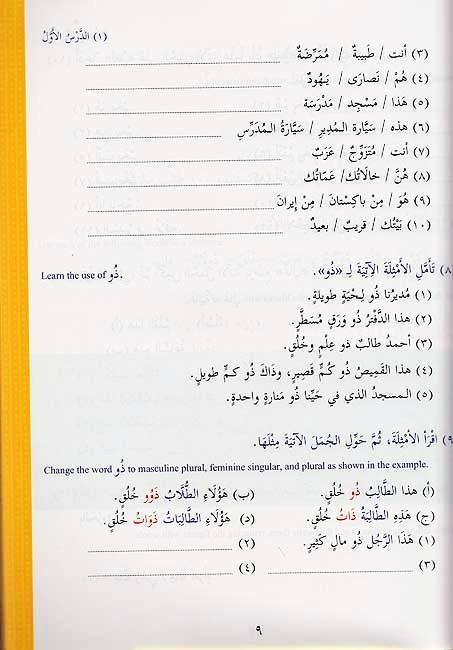 (١) الدَّرْسُ الأَوَّلُ
(٣) أنت / طَبيبةٌ / مُمَرِّضَةٌ
(٤) هُمْ / نَصَارَى / يَـهُودٌ
(٥) هَذا / مَسْجِد / مَدْرَسَة
(٦) هذه / سَيَّارة الـمُدير / سَيَّارَةُ الـمُدَرِّسِ
(٧) أنت / مُتَزَوِّجٌ / عَزَبٌ
(٨) هُنَّ / خالَاتُك / عَمّاتُك
(٩) هُوَ / مِنْ باكِسْتانَ / مِن إيرانَ
(١٠) بَيْتُك / قريبٌ / بعيدٌ
(٨) تَأَمَّلِ الأَمْثِلَةَ الآتِيَةَ لِـ «ذُو».
Learn the use of ذُو.
(١) مُديرُنا ذُو لِـحْيَةٍ طويلةٍ.
(٢) هذا الدَّفْتَرُ ذُو وَرَقٍ مُسَطَّرٍ.
(٣) أحمدُ طالبٌ ذو عِلْمٍ وخُلُقٍ.
(٤) هذا القَمِيصُ ذُو كُمٍّ قَصِيرٍ، وذَاكَ ذُو كمٍّ طويلٍ.
(٥) الـمسجدُ الذي في حَيِّنا ذُو مَنارةٍ واحدةٍ.
(٩) اقْرَأ الأمْثِلَةَ، ثُمَّ حَوِّلِ الجُمَلَ الآتِيَةَ مِثْلَهَا.
Change the word ذُو to masculine plural, feminine singular, and plural as shown in the example.
(أ) هذا الطَّالِبُ ذُو خُلُقٍ. (ب) هَؤُلَاءِ الطُّلَّابُ ذَوُو خُلُقٍ.
(ج) هَذِهِ الطَّالِبَةُ ذَاتُ خُلُقٍ. (د) هَؤُلَاءِ الطَّالِبَاتُ ذَوَاتُ خُلُقٍ.
(١) هَذَا الرَّجُل ذُو مالٍ كَثِيرٍ. (٢)
(٣) (٤)
٩